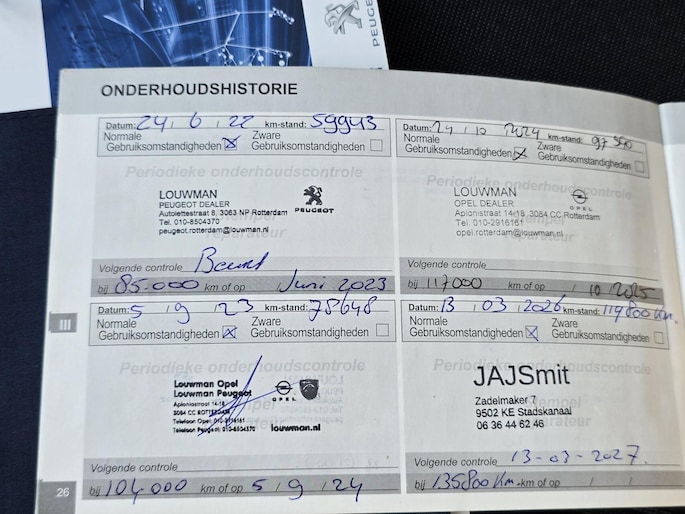 PEUGEOT
ONDERHOUDSHISTORIE
Datum: 24 / 6 / 22 km-stand: 59943
Normale Gebruiksomstandigheden ☒ Zware Gebruiksomstandigheden ☐
Periodieke onderhoudscontrole
LOUWMAN
PEUGEOT DEALER
Autolettestraat 8, 3063 NP Rotterdam
Tel. 010-8504370
peugeot.rotterdam@louwman.nl
PEUGEOT
Volgende controle
bij 85.000 km of op Juni 2023
Datum: 24 / 10 / 2024 km-stand: 97
Normale Gebruiksomstandigheden ☒ Zware Gebruiksomstandigheden ☐
Periodieke onderhoudscontrole
LOUWMAN
OPEL DEALER
Aplonistraat 14-18, 3084 CC Rotterdam
Tel. 010-2916161
opel.rotterdam@louwman.nl
OPEL
Volgende controle
bij 117000 km of op / 10 / 2025
III
Datum: 5 / 9 / 23 km-stand: 78648
Normale Gebruiksomstandigheden ☒ Zware Gebruiksomstandigheden ☐
Periodieke onderhoudscontrole
Louwman Opel
Louwman Peugeot
Aplonistraat 14-18
3084 CC ROTTERDAM
Telefoon Opel:
Telefoon Peugeot: 010-8504370
OPEL
louwman.nl
Volgende controle
bij 104.000 km of op 5 / 9 / 24
Datum: 13 / 03 / 2026 km-stand: 119800 Km.
Normale Gebruiksomstandigheden ☒ Zware Gebruiksomstandigheden ☐
Periodieke onderhoudscontrole
JAJSmit
Zadelmaker 7
9502 KE Stadskanaal
06 36 44 62 46
Volgende controle 13-03-2027.
bij 135800 Km. km of op / /
26